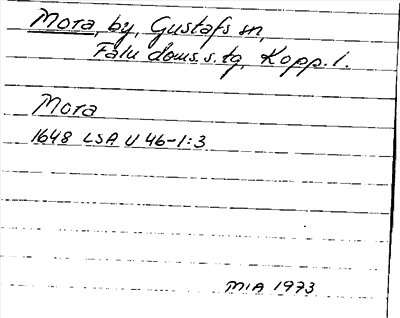 Mora, by, Gustafs sn,
Falu doms. s. tg, Kopp. l.
Mora
1648 LSA U 46-1:3
MIA 1973